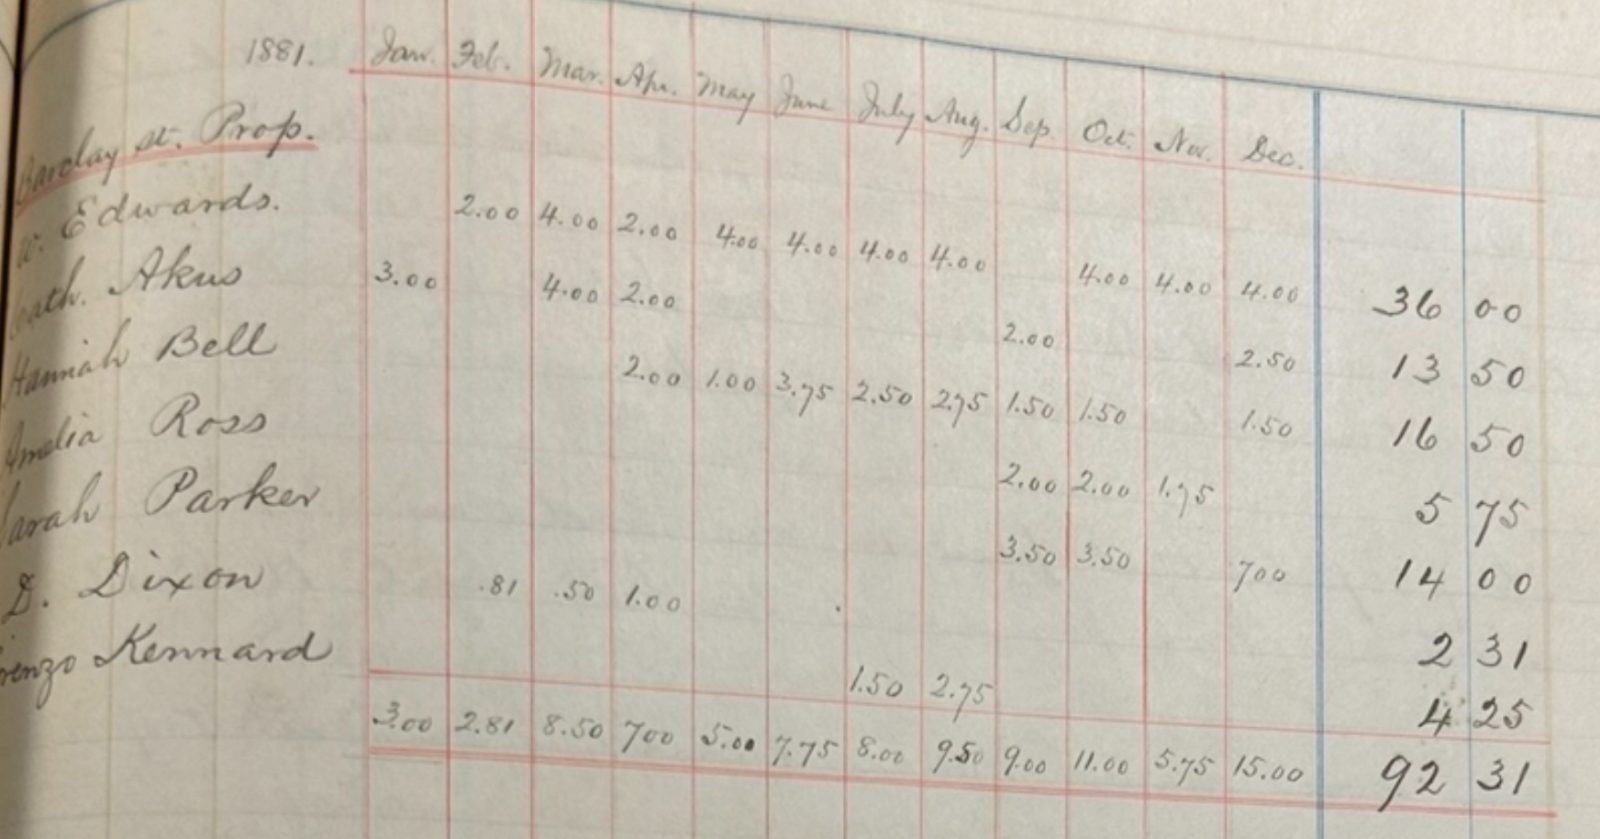 1881. Jan. Feb. Mar. Apr. May June July Aug. Sep. Oct. Nov. Dec.
Barclay St. Prop.
W. Edwards. 2.00 4.00 2.00 4.00 4.00 4.00 4.00 4.00 4.00 4.00 36 00
Cath. Akus 3.00 4.00 2.00 2.00 2.50 13 50
Hannah Bell 2.00 1.00 3.75 2.50 2.75 1.50 1.50 1.50 16 50
Amelia Ross 2.00 2.00 1.75 5 75
Sarah Parker 3.50 3.50 700 14 00
D. Dixon .81 .50 1.00 2 31
renzo Kennard 1.50 2.75 4 25
3.00 2.81 8.50 700 5.00 7.75 8.00 9.50 9.00 11.00 5.75 15.00 92 31